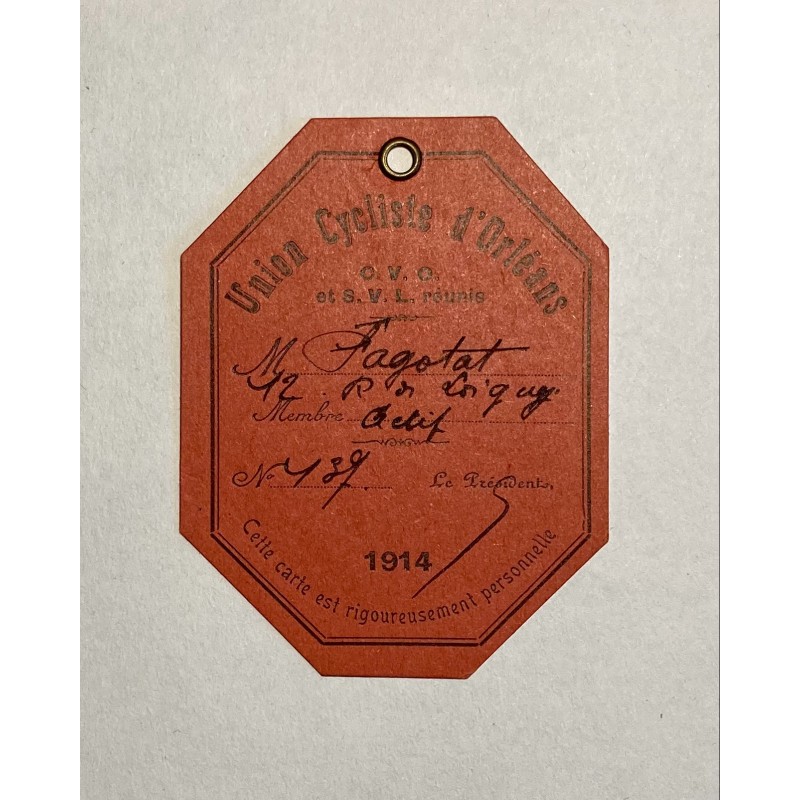 Union Cycliste d'Orléans
C. V. O.
et S. V. L. réunis
M Fagotat
12. R de Loigny
Membre Actif
No 139
Le Président,
1914
Cette carte est rigoureusement personnelle